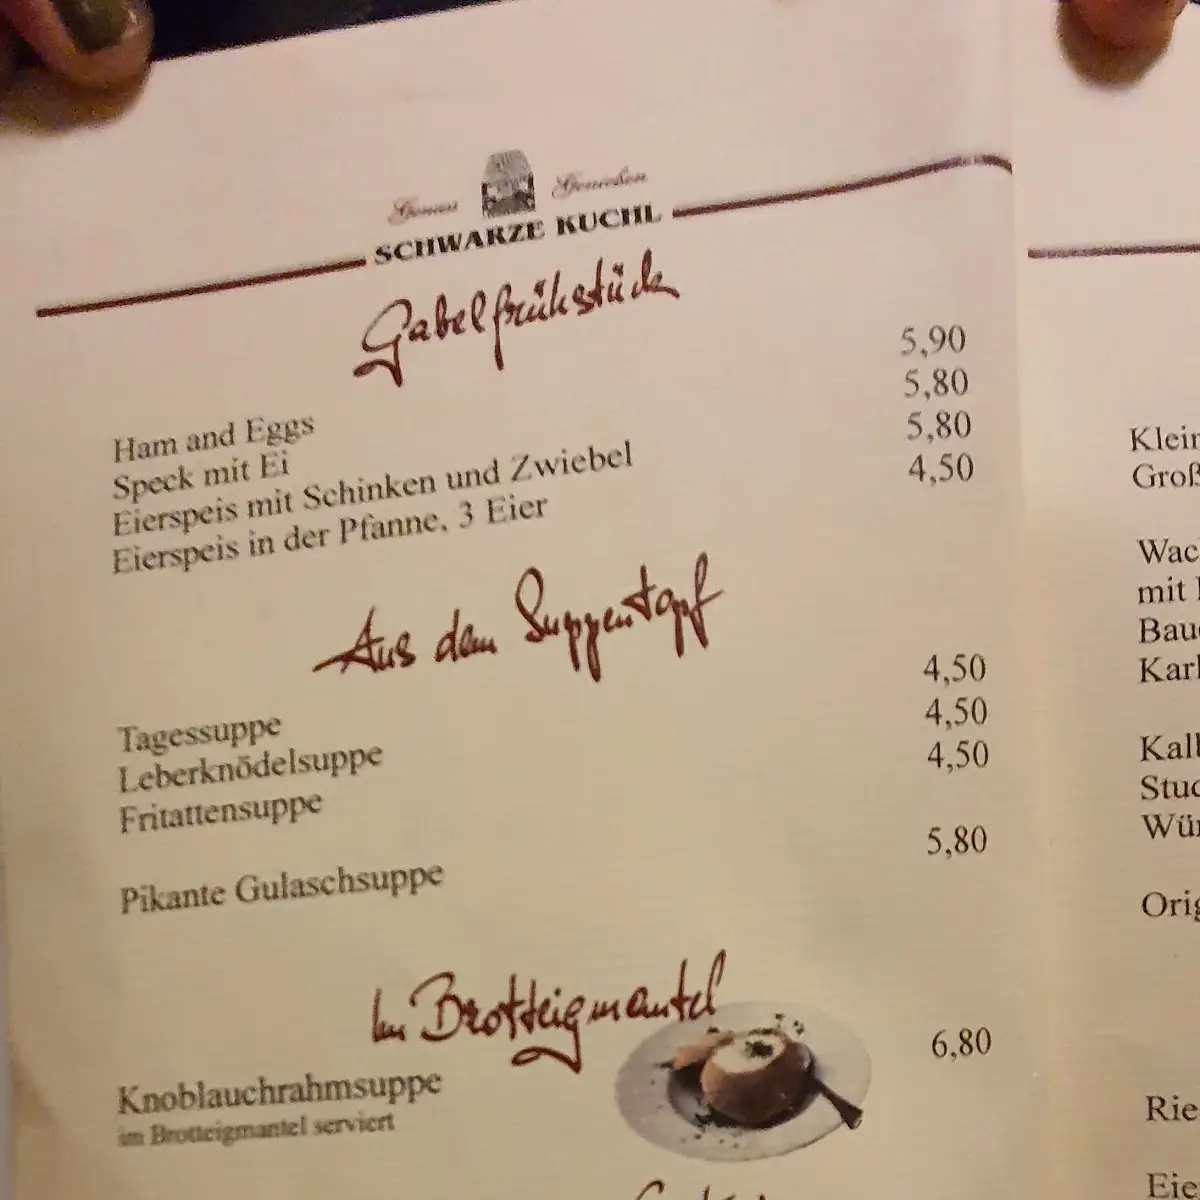 Genuss Genießen
SCHWARZE KUCHL
Gabelfrühstück
Ham and Eggs 5,90
Speck mit Ei 5,80
Eierspeis mit Schinken und Zwiebel 5,80
Eierspeis in der Pfanne, 3 Eier 4,50
Aus dem Suppentopf
Tagessuppe 4,50
Leberknödelsuppe 4,50
Fritattensuppe 4,50
Pikante Gulaschsuppe 5,80
Im Brotteigmantel
Knoblauchrahmsuppe 6,80
im Brotteigmantel serviert
mit